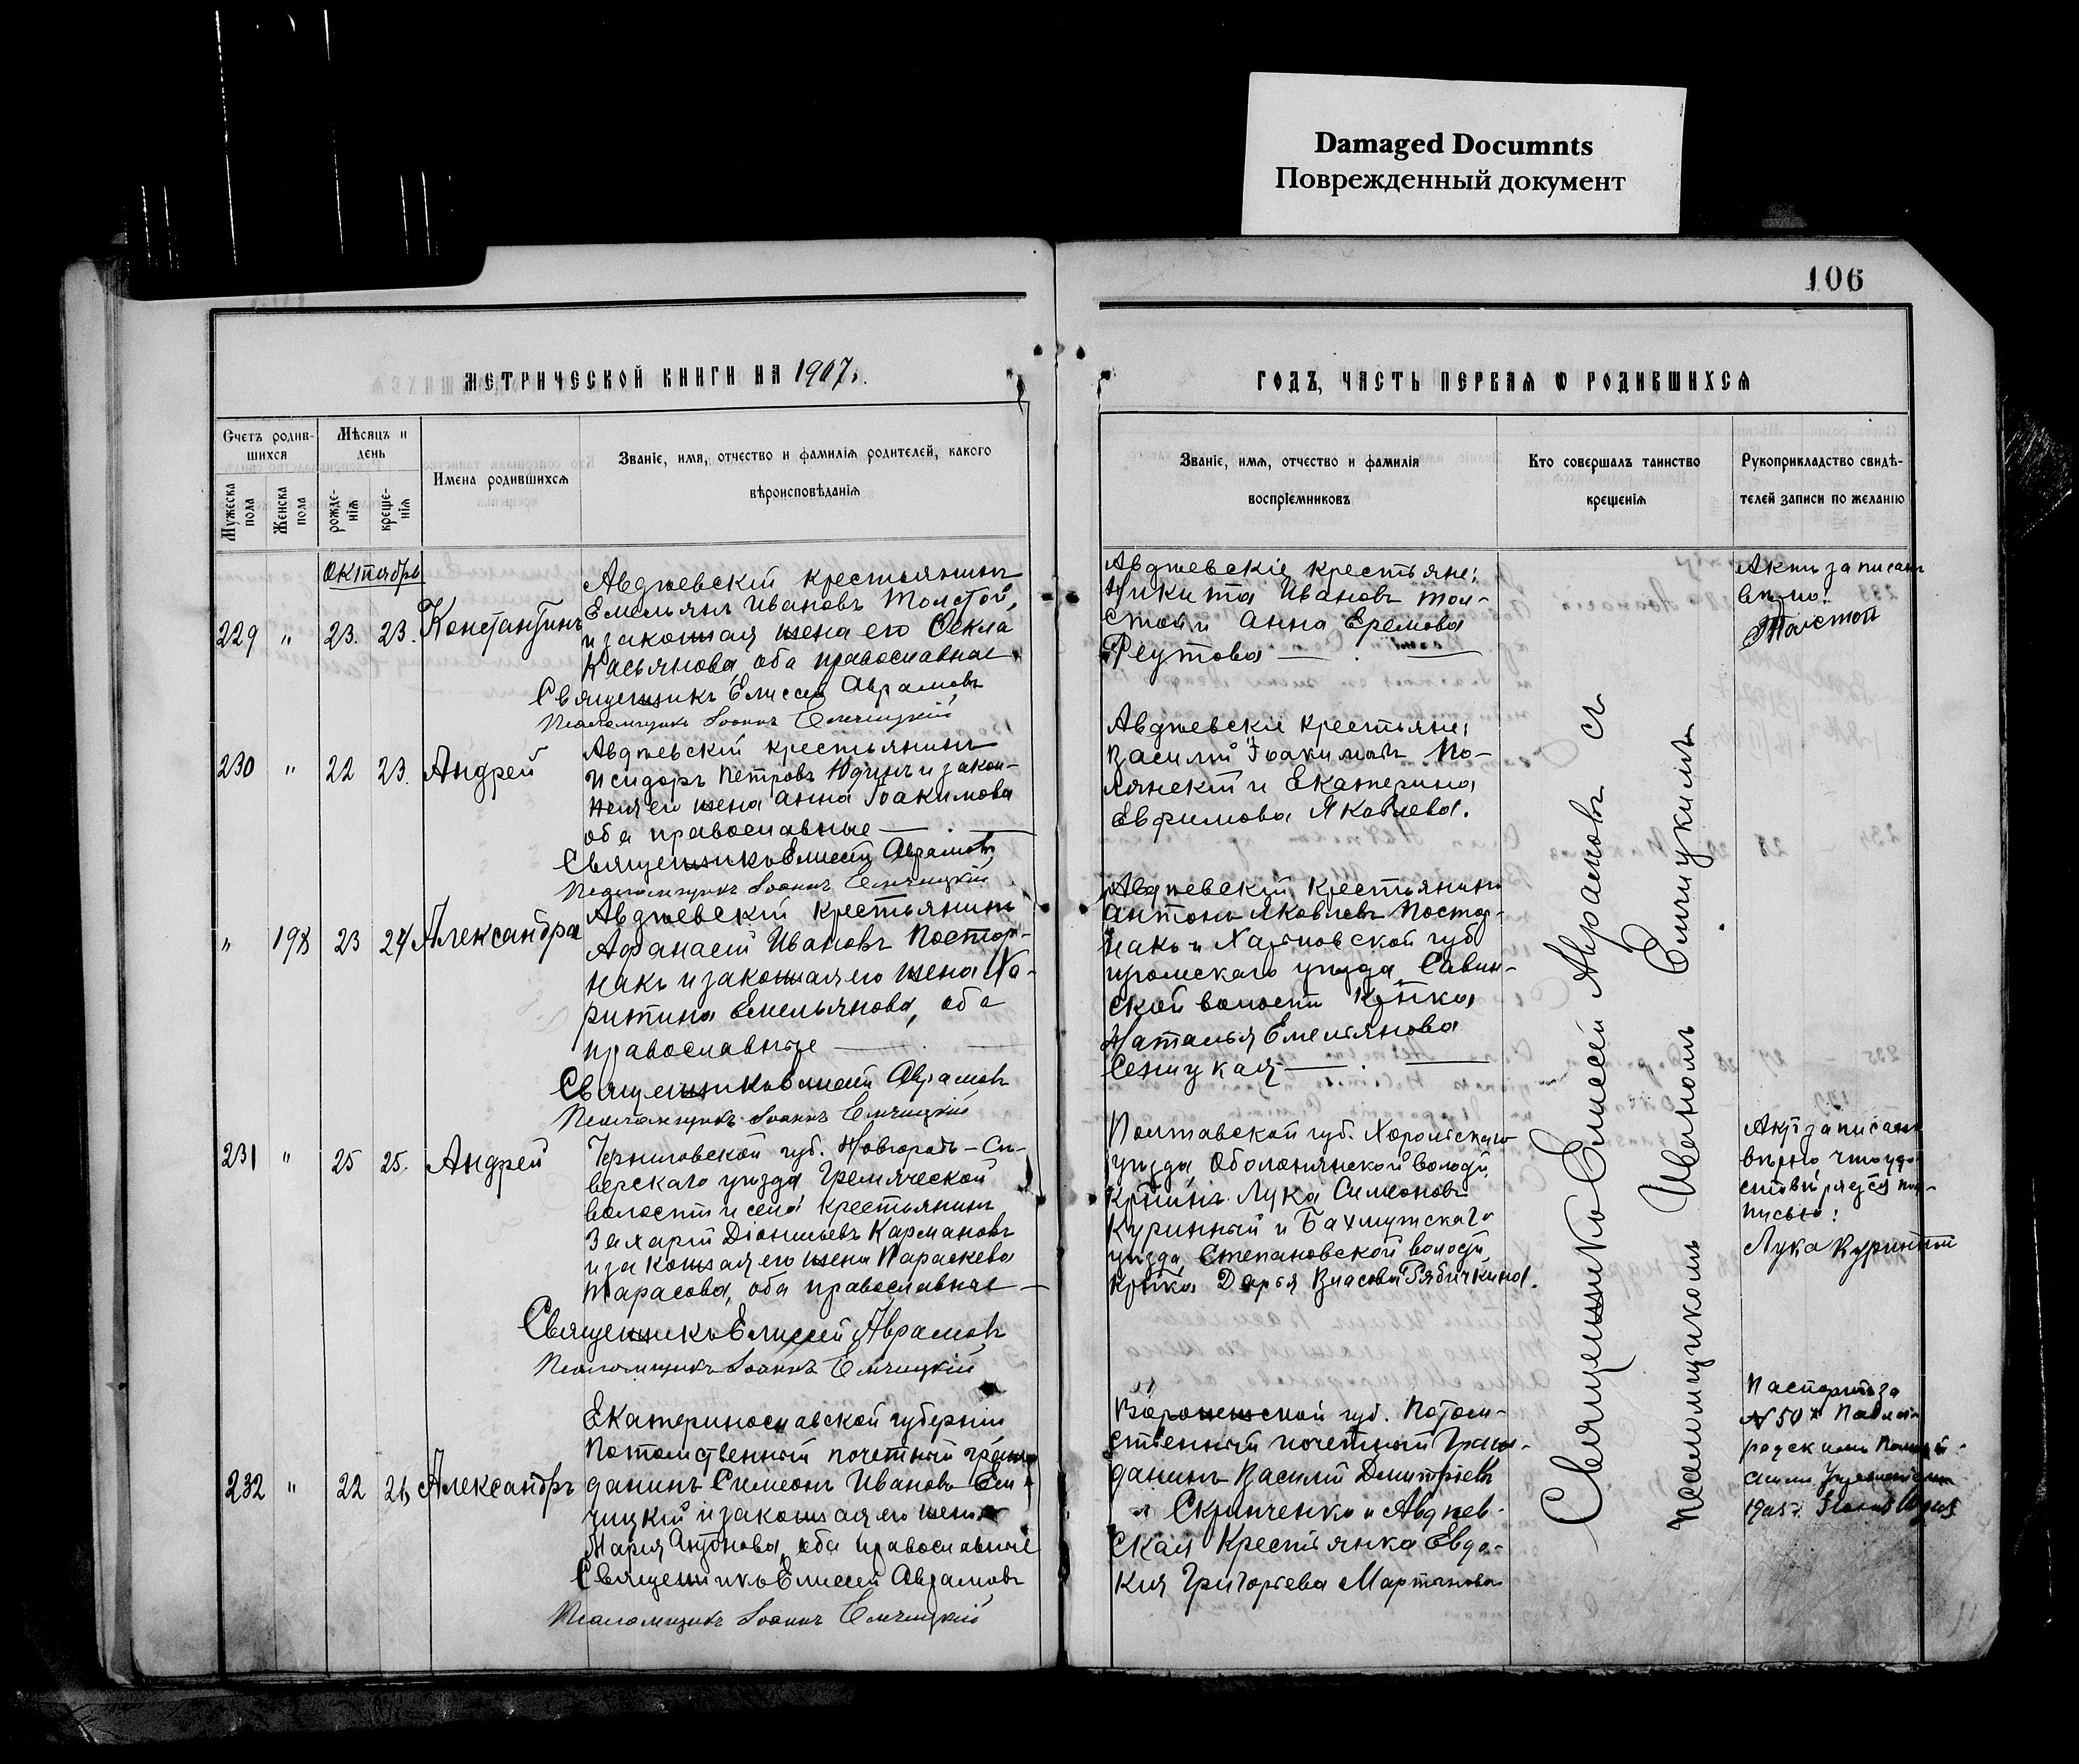 Damaged Documnts
Поврежденный документ
106
МЕТРИЧЕСКОЙ КНИГИ НА 1907 г.
ГОДЪ, ЧАСТЬ ПЕРВАЯ Ѡ РОДИВШИХСЯ
Счетъ родив-
шихся
Мѣсяцъ и
день
Мужеска
пола
Женска
пола
рожде-
нія
креще-
нія
Имена родившихся
Званіе, имя, отчество и фамилія родителей, какого
вѣроисповѣданія
Званіе, имя, отчество и фамилія
воспріемниковъ
Кто совершалъ таинство
крещенія
Рукоприкладство свидѣ-
телей записи по желанію
Октябрь
229 " 23. 23. Константинъ
Авдѣевскій крестьянинъ
Емельянъ Ивановъ Толстой,
и законная жена его Ѳекла
Касьянова, оба православные
Священникъ Елиссей Аврамовъ
Псаломщикъ Іоаннъ Емчицкій
Авдѣевскіе крестьяне:
Никита Ивановъ Тол-
стой и Анна Еремова
Реутова
Актъ записанъ
вѣрно:
Толстой
230 " 22 23. Андрей
Авдѣевскій крестьянинъ
Исидоръ Петровъ Юдинъ и закон-
ная его жена Анна Іоакимова
оба православные
Священникъ Елиссей Аврамовъ
Псаломщикъ Іоаннъ Емчицкій
Авдѣевскіе крестьяне:
Василій Іоакимовъ По-
лянскій и Екатерина
Евфимова Яковлева.
" 198 23 24 Александра
Авдѣевскій крестьянинъ
Афанасій Ивановъ Постор-
накъ и законная его жена Ха-
ритина Емельянова, оба
православные
Священникъ Елиссей Аврамовъ
Псаломщикъ Іоаннъ Емчицкій
Авдѣевскій крестьянинъ
Антонъ Яковлевъ Постор-
накъ и Харьковской губ.
уѣзда, Савин-
ской волости кр-нка
Наталья Емельянова
231 " 25 25. Андрей
Черниговской губ. Новгородъ-Сѣ-
верскаго уѣзда Гремяческой
волости и села крестьянинъ
Захарій Діонисьевъ Кармановъ
и законная его жена Параскева
Тарасова, оба православные
Священникъ Елиссей Аврамовъ
Псаломщикъ Іоаннъ Емчицкій
Полтавской губ. Хорольскаго
уѣзда, Оболонянской волости,
кр-нинъ Лука Симеоновъ
Куринный и Бахмутскаго
уѣзда, Степановской волости,
кр-нка Дарья Власова Рябичкина.
Актъ записанъ
вѣрно, что удо-
стовѣряется под-
писью:
Лука Куринный
232 " 22 Александръ
Екатеринославской губерніи
Потомственный почетный граж-
данинъ Симеонъ Ивановъ Ем-
чицкій и законная его жена
Марія Антонова, оба православные
Священникъ Елиссей Аврамовъ
Псаломщикъ Іоаннъ Емчицкій
Воронежской губ. Потом-
ственный почетный граж-
данинъ Василій Димитріевъ
Скрипченко и Авдѣев-
ская крестьянка Евдо-
кія Григорьева Мартынова
Паспортъ за
Священникъ Елиссей Аврамовъ съ
псаломщикомъ Иваномъ Емчицкимъ